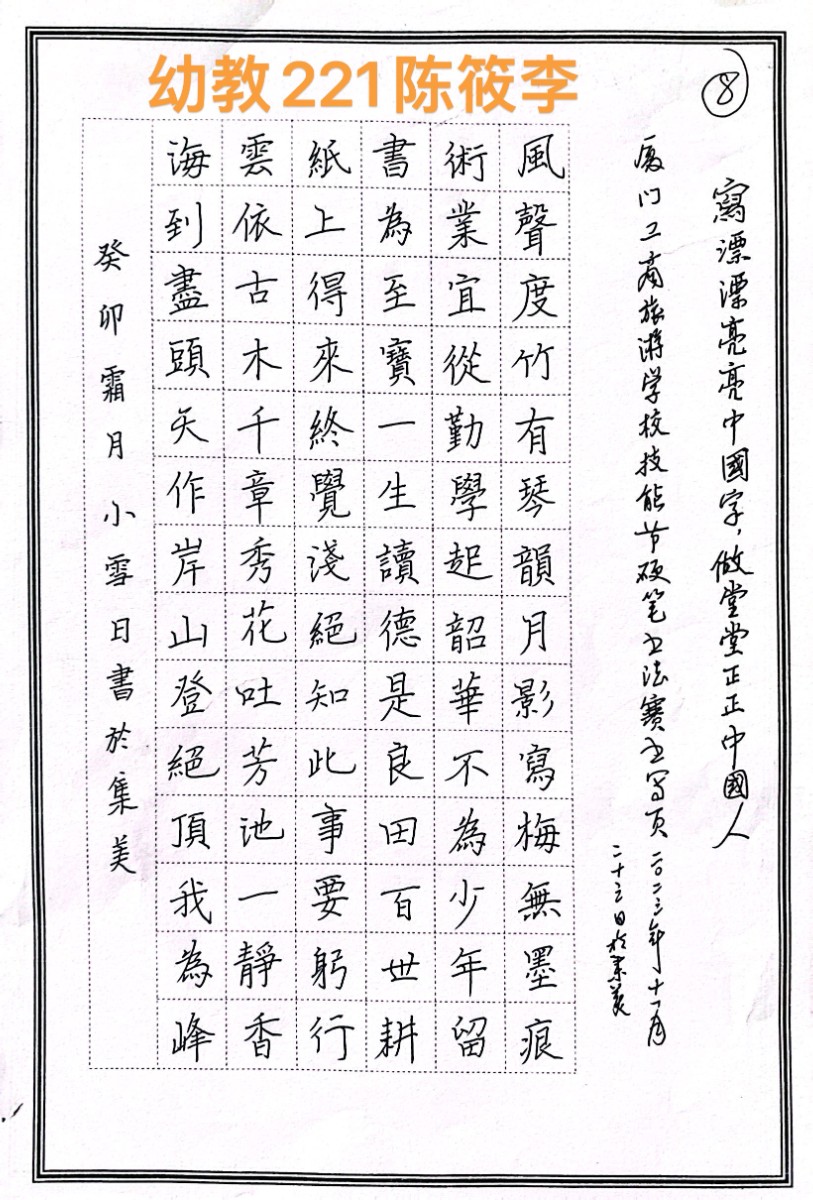 幼教221陈筱李
8
寫漂漂亮亮中國字，做堂堂正正中國人
厦门工商旅游学校技能节硬笔书法赛书写页 二〇二三年十一月
二十三日於集美
風聲度竹有琴韻月影寫梅無墨痕
術業宜從勤學起韶華不為少年留
書為至寶一生讀德是良田百世耕
紙上得來終覺淺絕知此事要躬行
雲依古木千章秀花吐芳池一靜香
海到盡頭天作岸山登絕頂我為峰
癸卯霜月小雪日書於集美